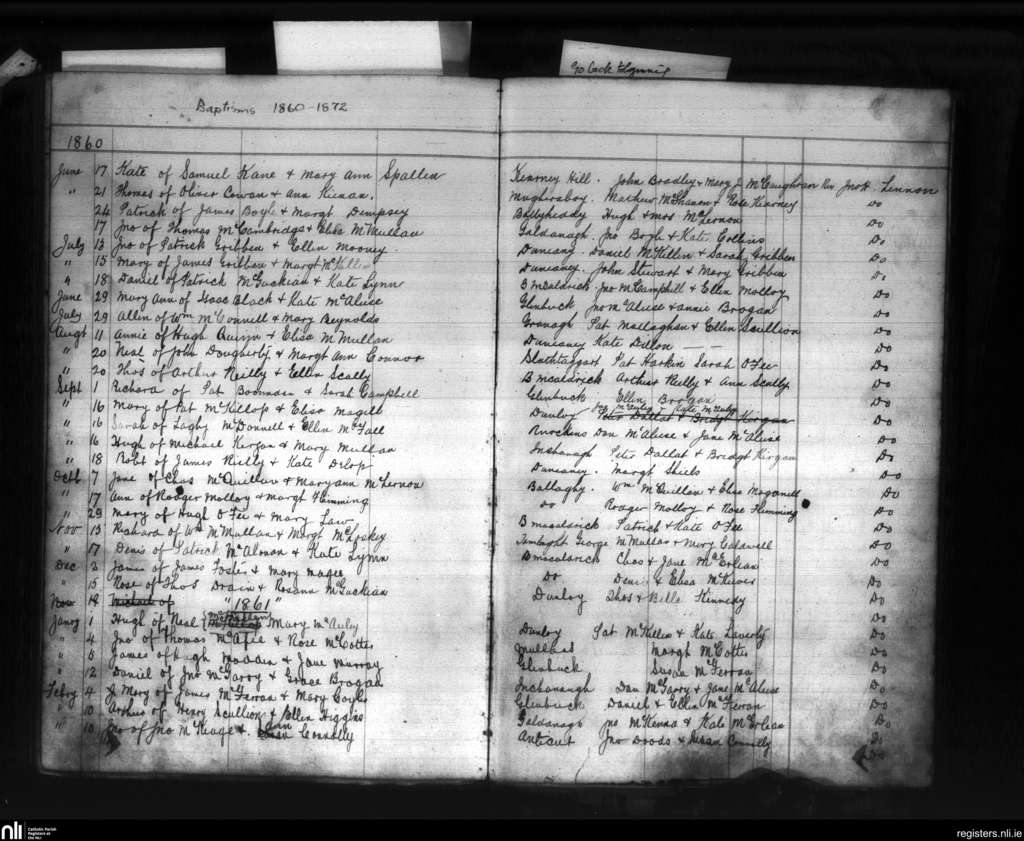 Go back
Baptisms 1860-1872
1860
June 17 Kate of Samuel Kane & Mary Ann Spallen Kearney Hill. John Bradley & Mary J McCaughran Rev Jno Lennon
" 21 Thomas of Oliver Cowan & Ann Kienan. Mugheraboy. Mathew McShanon & Rose Kearney Do
24 Patrick of James Boyle & Margt Dempsey Ballyheddy Hugh & Mrs McLernon Do
17 Jno of Thomas McCambridge & Eliza McMullan Galdanagh. Jno Boyle & Kate Collins Do
July 13 Jno of Patrick Gribben & Ellen Mooney. Duneany. Daniel McKillin & Sarah Gribben Do
" 15 Mary of James Gribben & Margt McKillen Duneaney. John Stewart & Mary Gribben Do
" 18 Daniel of Patrick McGuckian & Kate Lynn Bmcaldrick Jno McCamphill & Ellen Molloy Do
June 29 Mary Ann of Isaac Black & Kate McAlise Glenbuck Jno McAlise & Annie Brogan Do
July 29 Allen of Wm McConnell & Mary Reynolds Granagh Pat Mallaghan & Ellen Scullion Do
Augt 11 Annie of Hugh Quinn & Eliza McMullan Duneaney Kate Dillon — — Do
" 20 Neal of John Dougherty & Margt Ann Connor Slathtaggart Pat Harkin Sarah O'Fee Do
" 20 Thos of Arthur Reilly & Ellen Scally Bmcaldrick Arthur Reilly & Ann Scally Do
Sept 1 Richard of Pat & Sarah Campbell Glenbuck Ellen Brogan Do
" 16 Mary of Pat McKillop & Elisa Magill Dunloy McAuley & Kate McAuley Peter Dallat & Bridgt Kirgan Do
" 16 Sarah of McDonnell & Ellen McFall Dan McAlese & Jane McAlise Do
" 16 Hugh of Michael Kirgan & Mary Mullan Inshanagh Peter Dallat & Bridgt Kirgan Do
" 18 Robt of James Reilly & Kate Duneaney. Margt Shiels Do
Octb 7 Jane of Chas McQuillan & Mary ann McLernon Ballaghy. Wm McQuillan & Elisa Do
" 17 Ann of Rodger Molloy & Margt Flemming do Rodger Molloy & Rose Flemming Do
" 29 Mary of Hugh O'Fee & Mary Law Bmacaldrick Patrick & Kate O'Fee Do
Nov 13 Richard of Wm McMullan & Margt McLoskey Tamlaght George McMullan & Mary Caldwell Do
" 17 Denis of Patrick McAlonan & Kate Lynn Bmacaldrick Chas & Jane McErlean Do
Dec 3 James of James Foster & Mary Magee Do Denis & Elisa McKeever Do
" 15 Rose of Thos Drain & Rosann McGuckian Dunloy Thos & Bella Kennedy Do
Nov 14 Michael of "1861" Do
Jany 1 Hugh of Neal McMullan Mary McAuley Dunloy Pat McKillen & Kate Laverty Do
" 4 Jno of Thomas McAfee & Rose McCotter Mullans Margt McCotter Do
" 5 James of Hugh Madden & Jane Murray Glenbuck Susan McFerran Do
" 12 Daniel of Jno McGarry & Grace Brogan Inchanaugh Dan McGarry & Jane McAlise Do
Febry 4 Mary of James McFerran & Mary Coyle Glenbuck Daniel & Ellen McFerran Do
" 10 Arthur of Henry Scullion & Ellen Higgins Galdanagh Jno McKenna & Kate McErlean Do
" 10 Jno of Jno McKeage & Ann Connolly Anticur Jno Dodds & Susan Connolly Do
nli Catholic Parish Registers at the NLI
registers.nli.ie